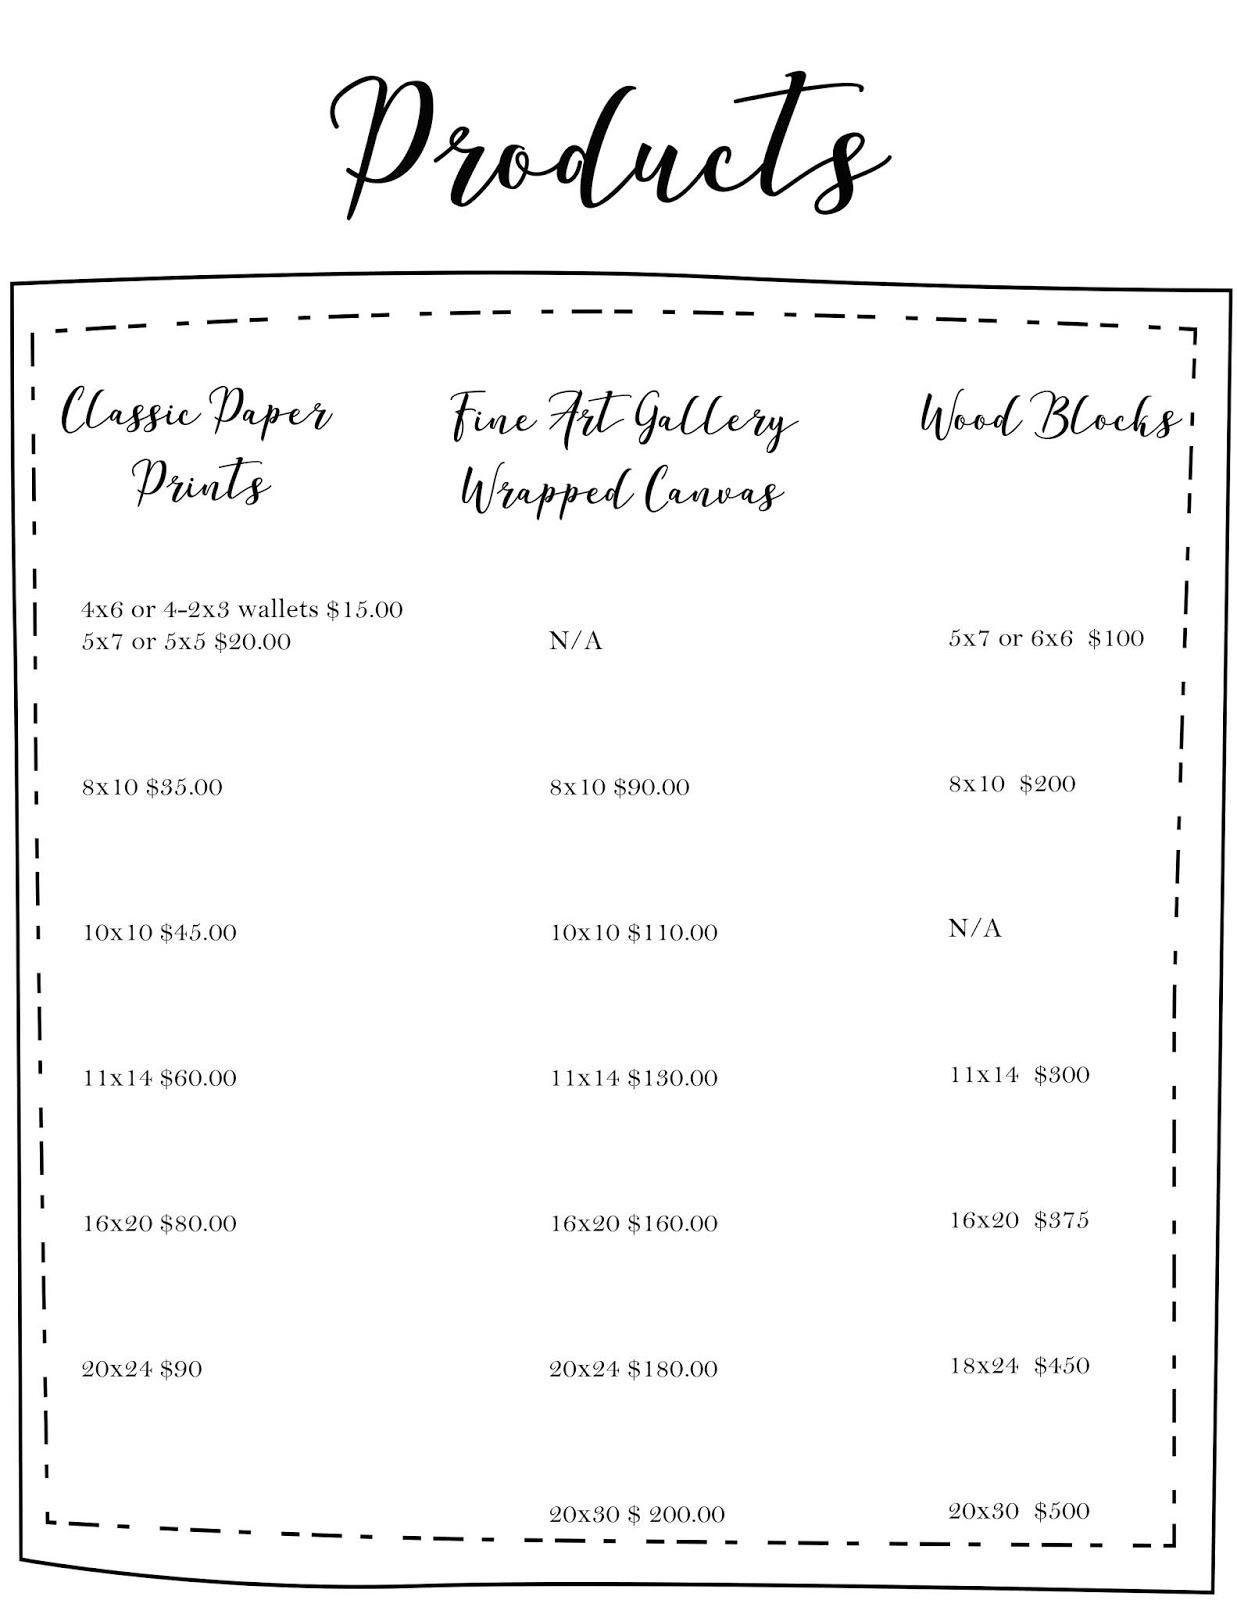 Products
Classic Paper
Prints
Fine Art Gallery
Wrapped Canvas
Wood Blocks
4x6 or 4-2x3 wallets $15.00
5x7 or 5x5 $20.00
N/A
5x7 or 6x6 $100
8x10 $35.00
8x10 $90.00
8x10 $200
10x10 $45.00
10x10 $110.00
N/A
11x14 $60.00
11x14 $130.00
11x14 $300
16x20 $80.00
16x20 $160.00
16x20 $375
20x24 $90
20x24 $180.00
18x24 $450
20x30 $ 200.00
20x30 $500